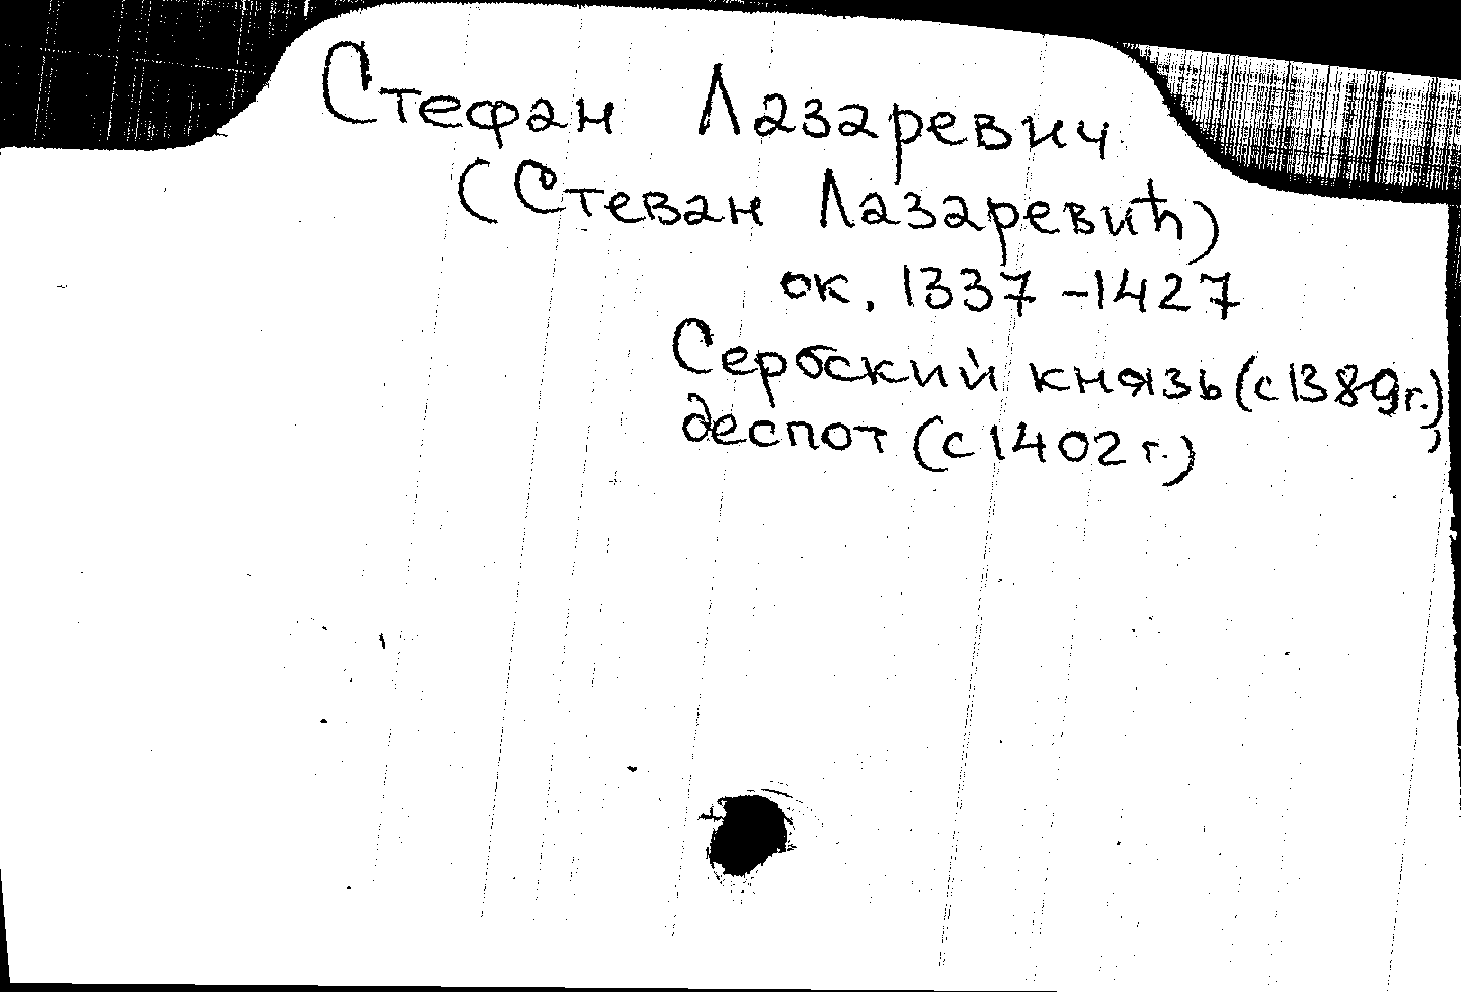 Стефан Лазаревич
(Стеван Лазаревић)
ок. 1337 - 1427
Сербский князь (с 1389г.),
деспот (с 1402 г.)